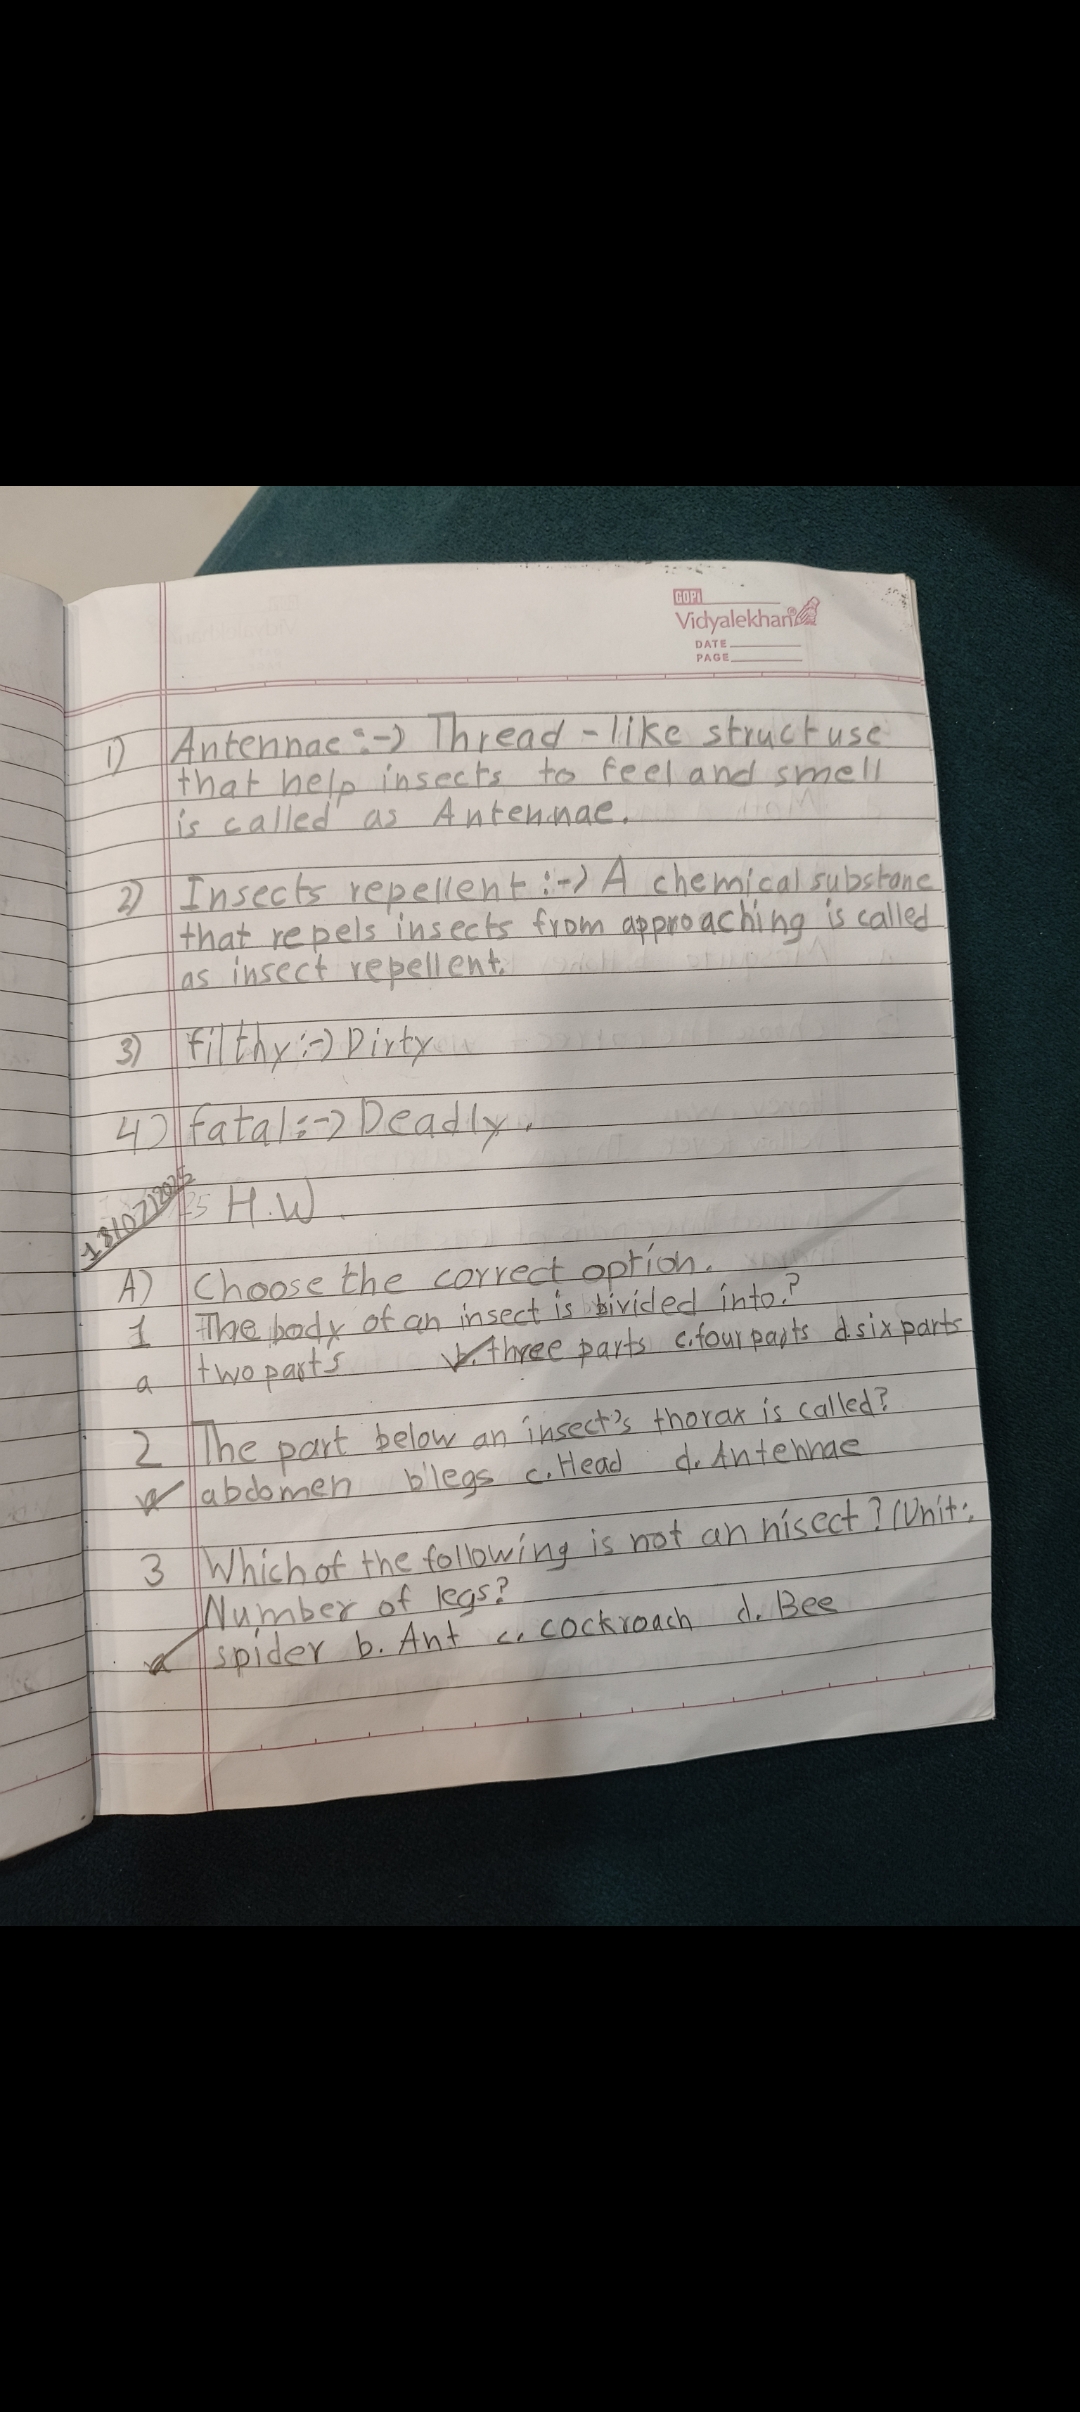 GOPI
Vidyalekhan
DATE
PAGE
1) Antennae :-) Thread-like structuse
that help insects to feel and smell
is called as Antennae.
2) Insects repellent :-) A chemical substane
that repels insects from approaching is called
as insect repellent.
3) filthy :-) Dirty
4) fatal :-) Deadly.
18/07/2025 H.W.
A) Choose the correct option.
1 The body of an insect is divided into.?
a two parts b. three parts c. four parts d. six parts
2 The part below an insect's thorax is called?
a abdomen b legs c. Head d. Antennae
3 Which of the following is not an nisect? (Unit:
Number of legs?
a spider b. Ant c. cockroach d. Bee